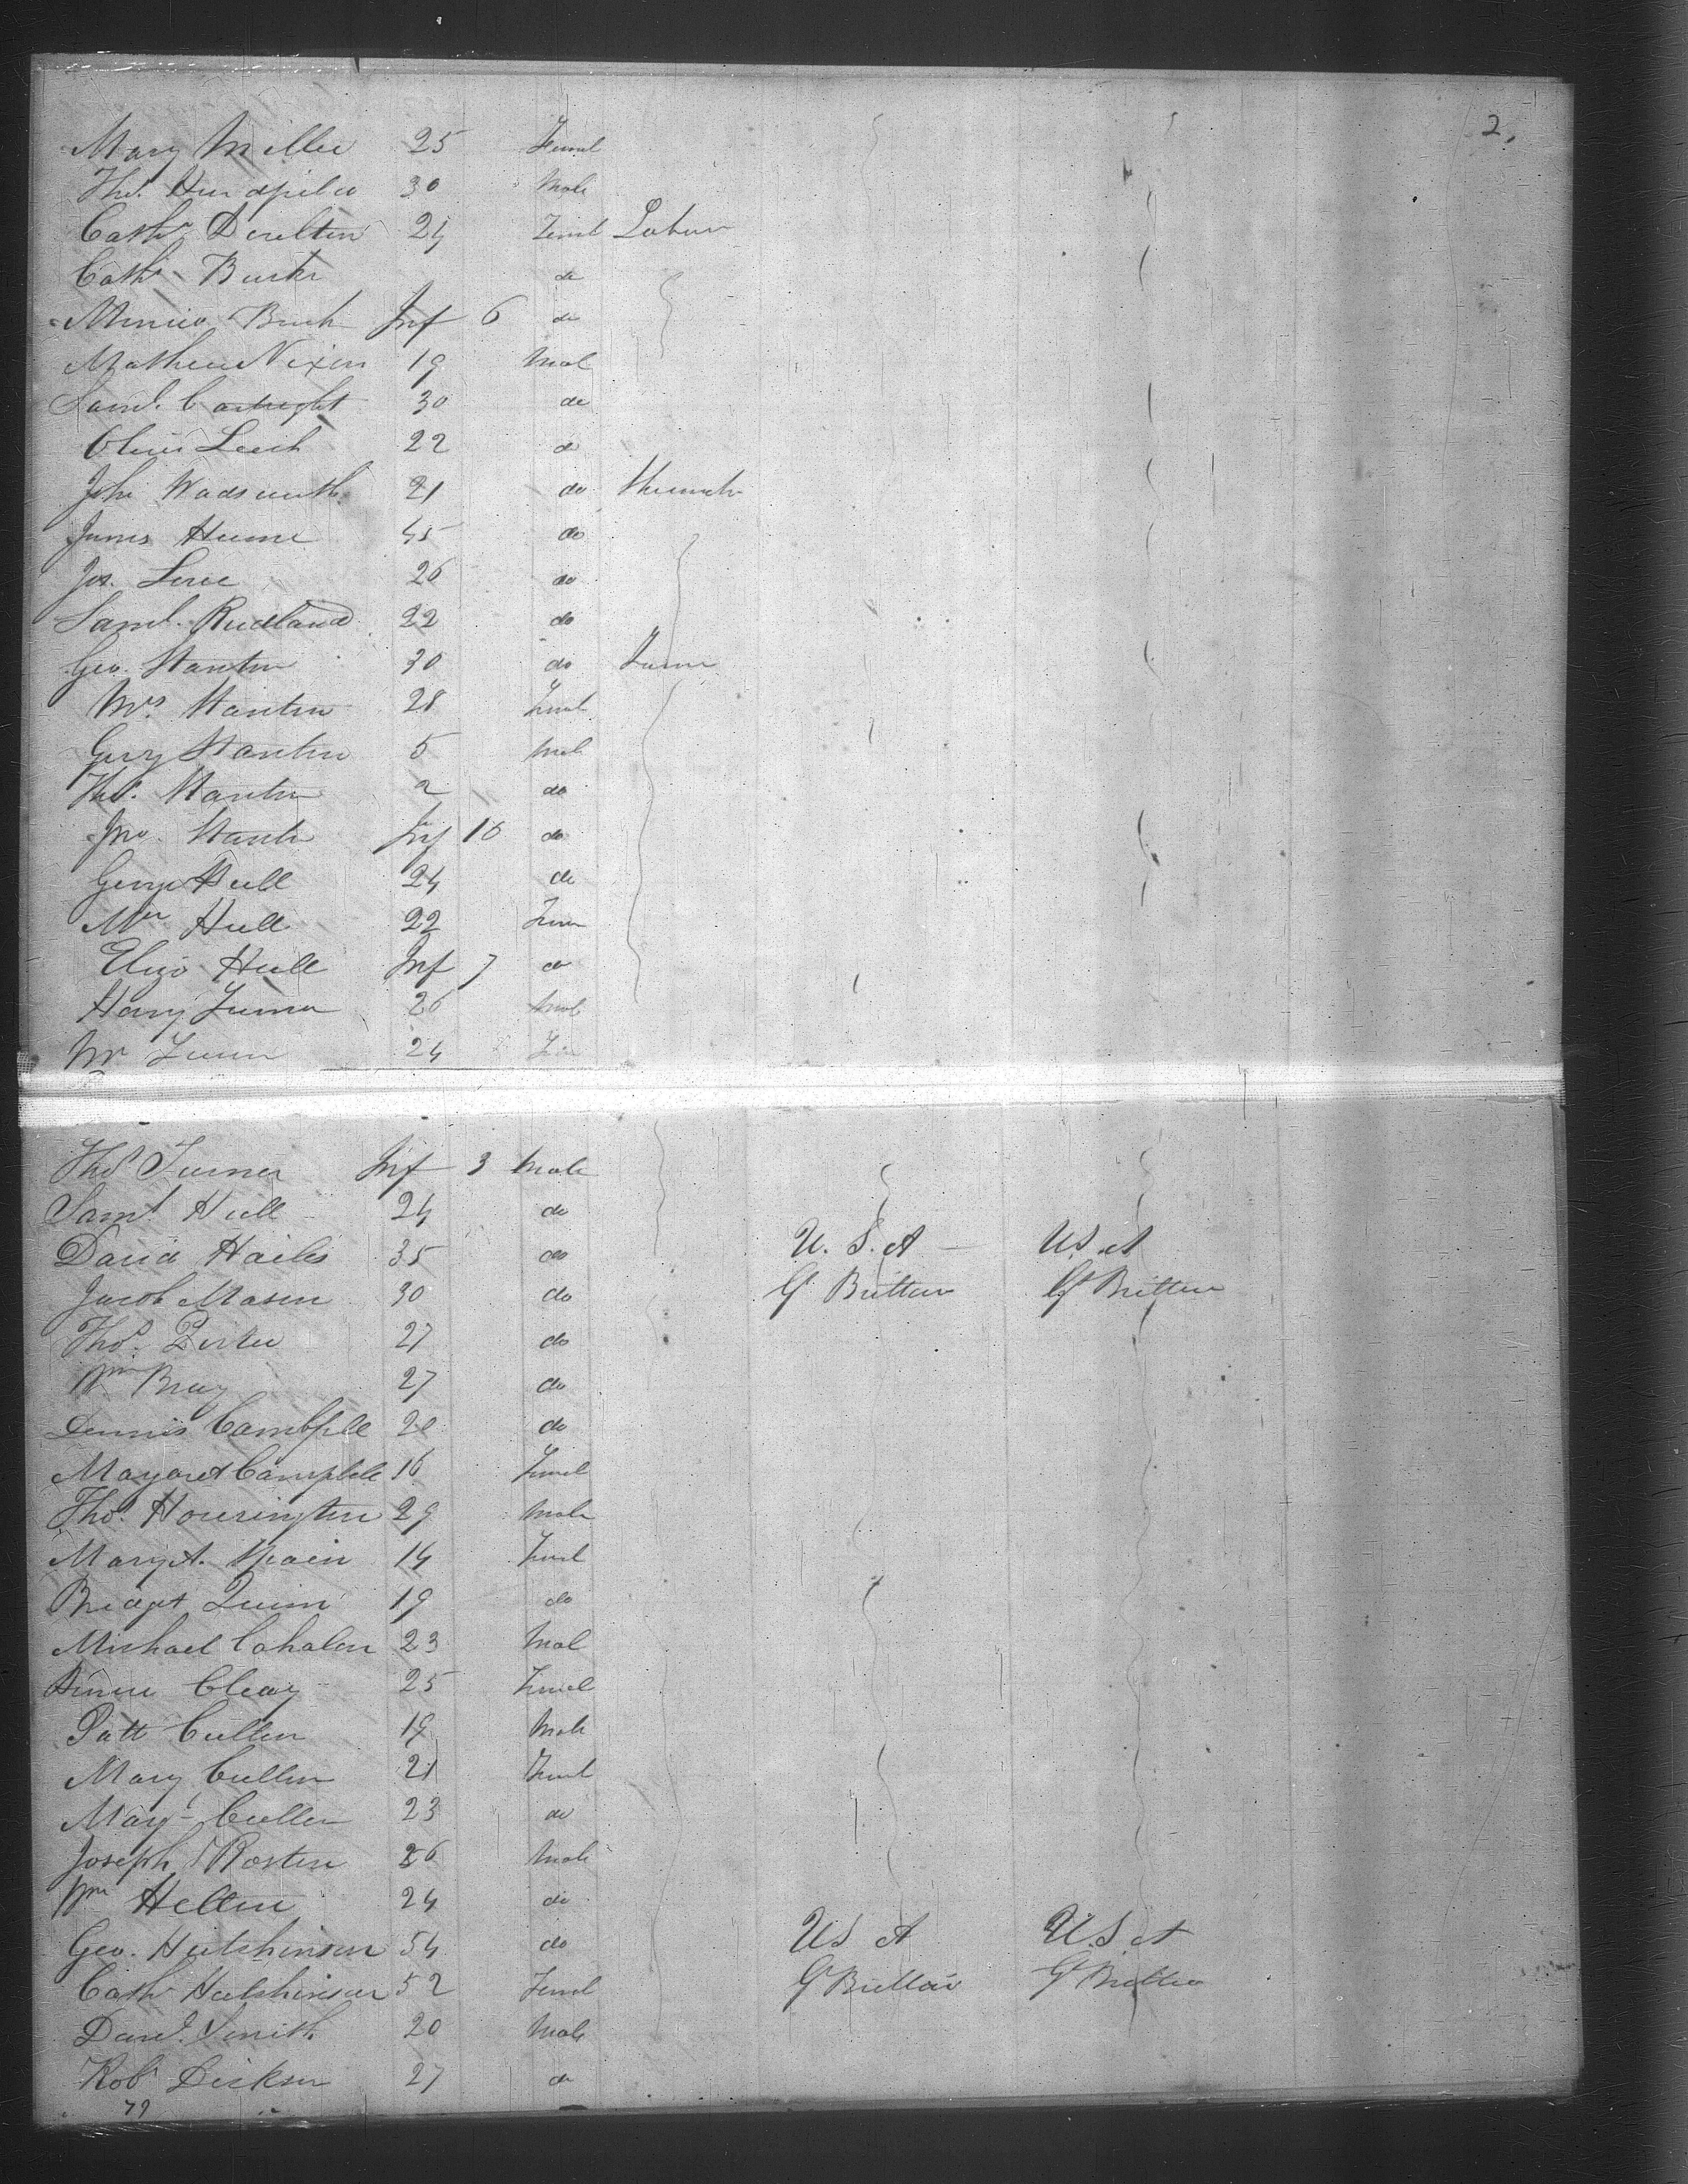 2.
Mary Miller 25 Femal
Thos. 30 Male
Cathe 24 Feml Labour
Cath Burke do
Burk Inf 6 do
Mathew Nixon 19 Mal
Saml. Cartright 30 do
Leech 22 do
John Wadsworth 21 do
James Hume 45 do
Jos. 26 do
Saml. Rudland 22 do
Geo. Stanton 30 do
Mrs. Stanton 28 Femal
Stanton 5 Male
Thos. Stanton 2 do
Jno. Stanton Inf 10 do
George Hull 24 do
Mrs Hull 22 Fem
Eliza Hull Inf 7 do
Harry Turner 26 Mal
Turner 24 Fem
Thos Turner Inf 3 Male
Saml Hull 24 do
David Hailes 35 do U. S. A U S A
Jacob Mason 30 do Gt Brittan Gt Brittan
Thos. 27 do
Wm Bray 27 do
Dennis Cambpell 20 do
Margaret Campbell 16 Femal
Thos. 29 Male
Mary A. Spain 14 Femal
Bridget Quinn 19 do
Michael Cahalan 23 Mal
Cleary 25 Femal
Patt Cullen 19 Male
Mary Cullen 21 Femal
Mary Cullen 23 do
Joseph 26 Male
Wm 24 do
Geo. Hutchinson 54 do U S A U S A
Cath Hutchinson 52 Femal Gt Brittan Gt Brittan
Danl. Smith 20 Male
Robt Dickson 27 do
79